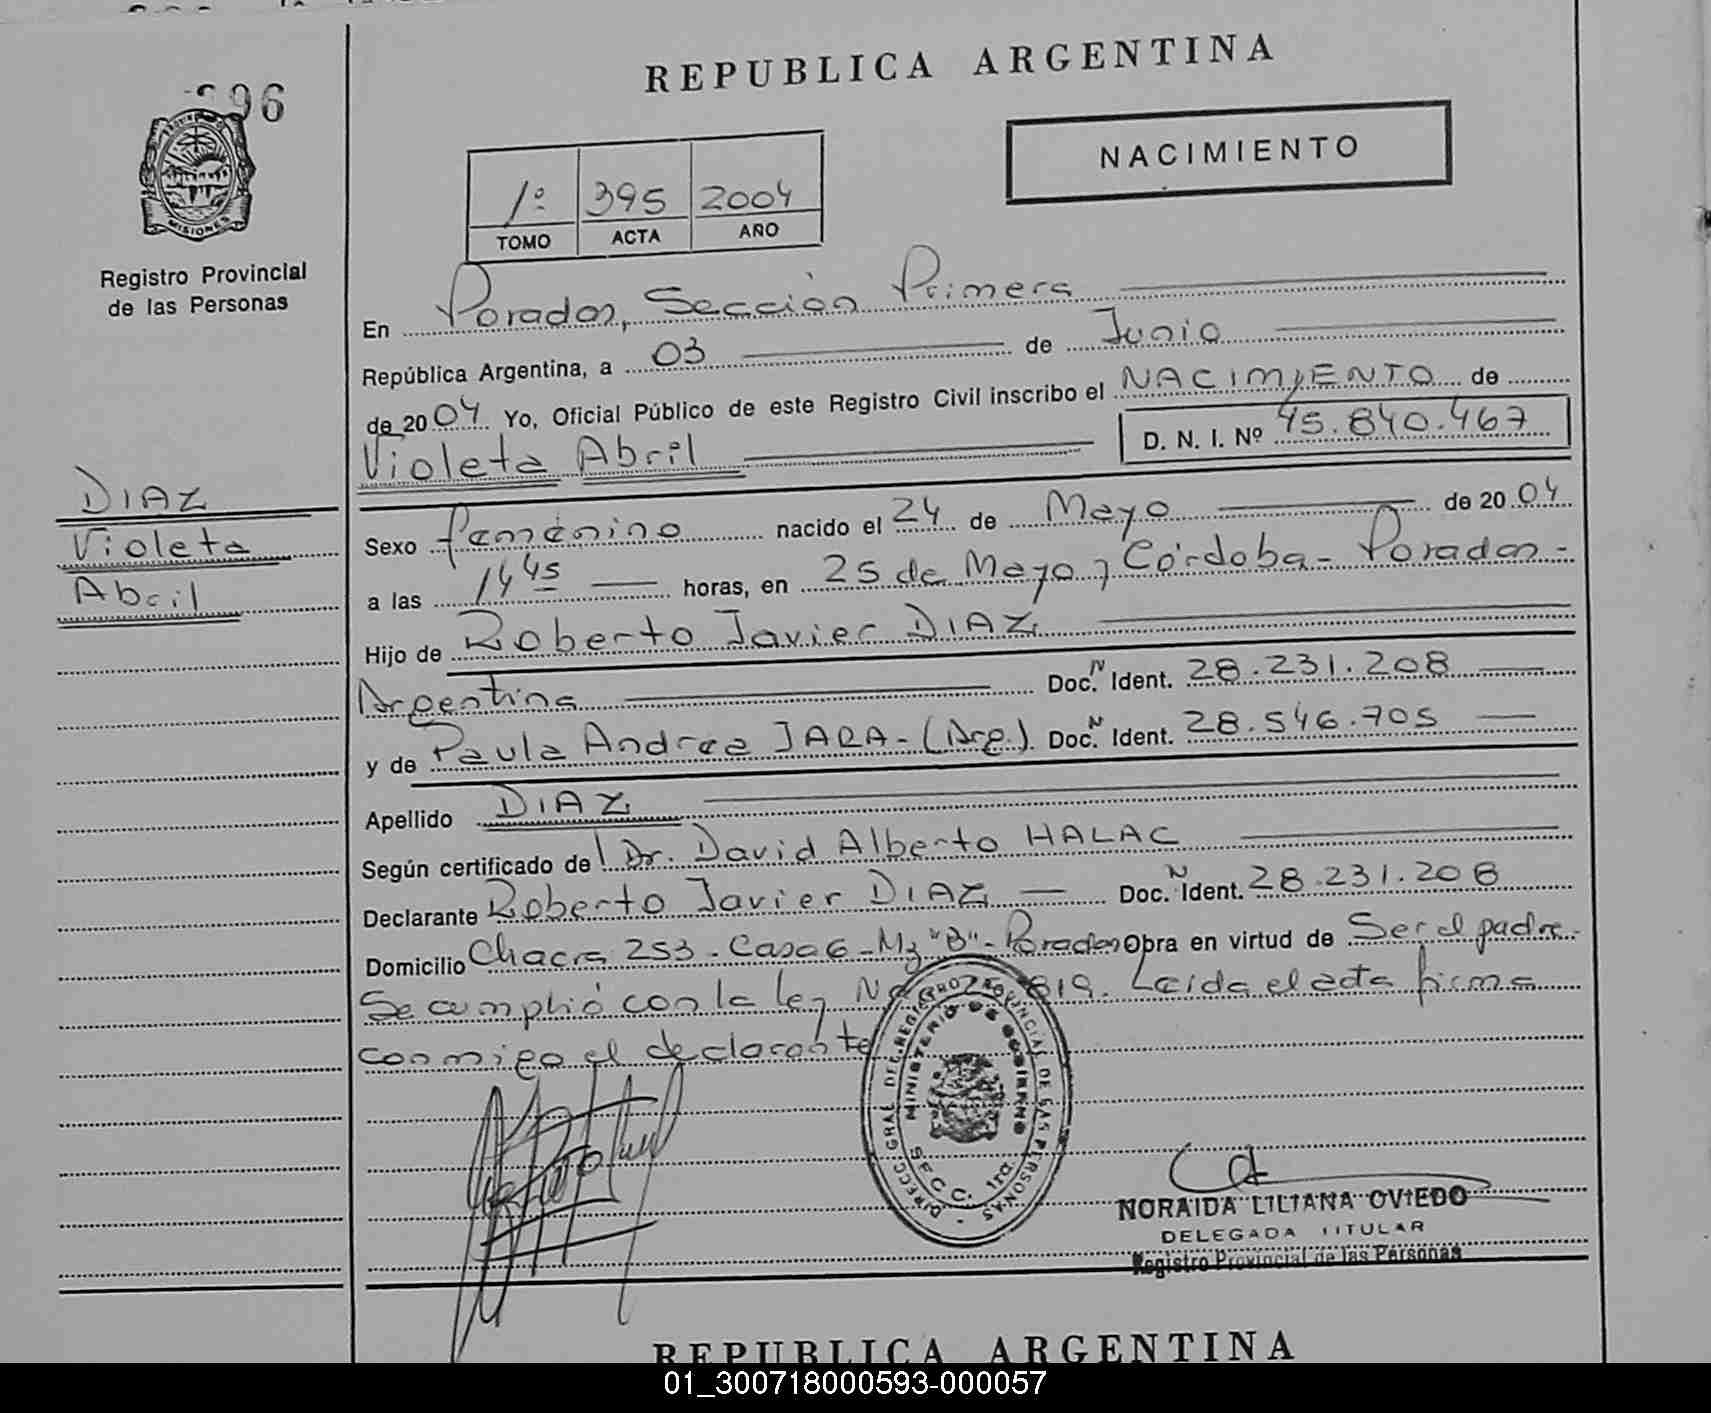 96
REPUBLICA ARGENTINA
NACIMIENTO
1º 395 2004
TOMO ACTA AÑO
MISIONES
Registro Provincial
de las Personas
En Posadas, Sección Primera
República Argentina, a 03 de Junio
de 2004 Yo, Oficial Público de este Registro Civil inscribo el NACIMIENTO de
Violeta Abril D. N. I. Nº 45.840.467
DIAZ
Violeta
Abril
Sexo femenino nacido el 24 de Mayo de 2004
a las 14 45 horas, en 25 de Mayo y Córdoba - Posadas -
Hijo de Roberto Javier DIAZ
Argentina Doc. N Ident. 28.231.208
y de Paula Andrea JARA - (Arg.) Doc. N Ident. 28.546.705
Apellido DIAZ
Según certificado de Dr. David Alberto HALAC
Declarante Roberto Javier DIAZ Doc. N Ident. 28.231.208
Domicilio Chacra 253 - Casa 6 - Mz "B" - Posadas Obra en virtud de Ser el padre -
Se cumplió con la ley Leída el acta firma
conmigo el declarante
DIRECC. GRAL. DEL REGISTRO PROVINCIAL DE LAS PERSONAS
MINISTERIO DE GOBIERNO
SECC. 1ra.
NORAIDA LILIANA OVIEDO
DELEGADA TITULAR
Registro Provincial de las Personas
REPUBLICA ARGENTINA
01_300718000593-000057